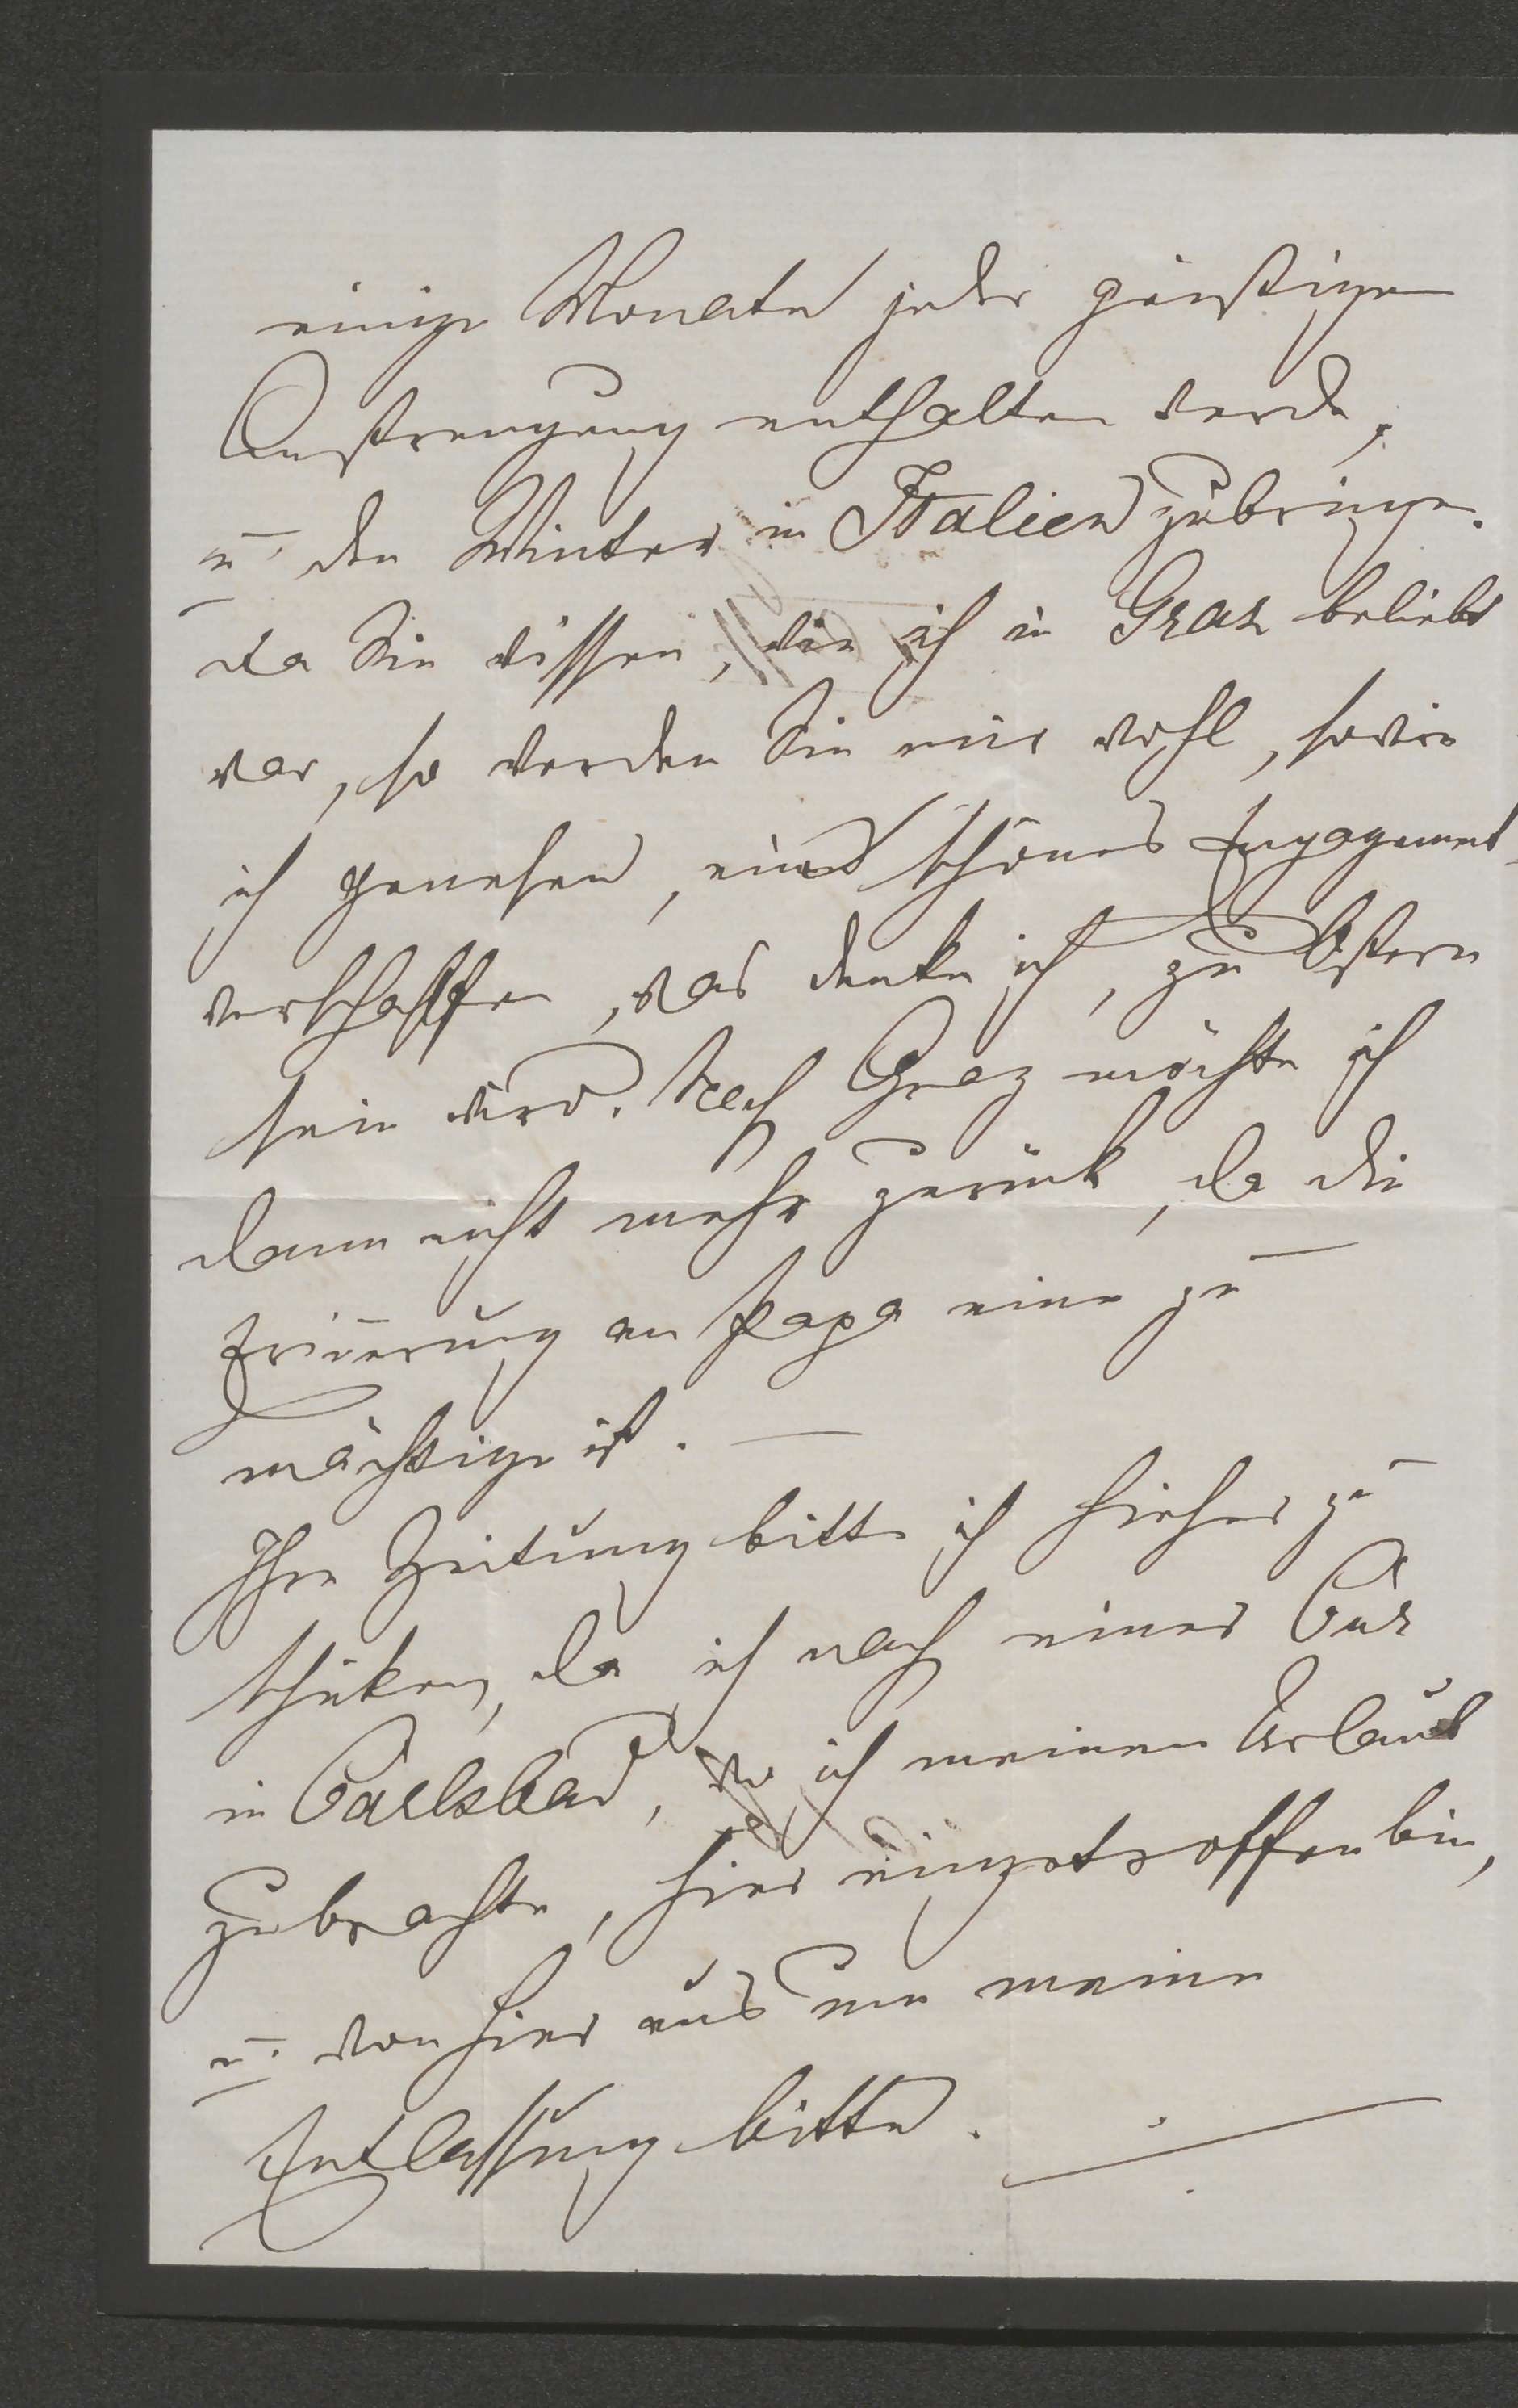 einige Monate jeder geistigen
Anstrengung enthalten werde,
u. den Winter in Italien zubringe.
Da Sie wissen, wie ich in Graz beliebt
war, so werden Sie mir wohl, sowie
ich genesen, eine schönes Engagement
verschaffen, was denke ich, zu Ostern
sein wird. Nach Graz möchte ich
dann nicht mehr zurück, da die
Erinerung an Papa eine zu
mächtige ist. —
Ihre Zeitung bitte ich hieher zu
schicken, da ich nach einer Cur
in Carlsbad, wo ich meinen Urlaub
zubrachte, hier eingetroffen bin,
u. von hier aus um meine
Entlassung bitte.